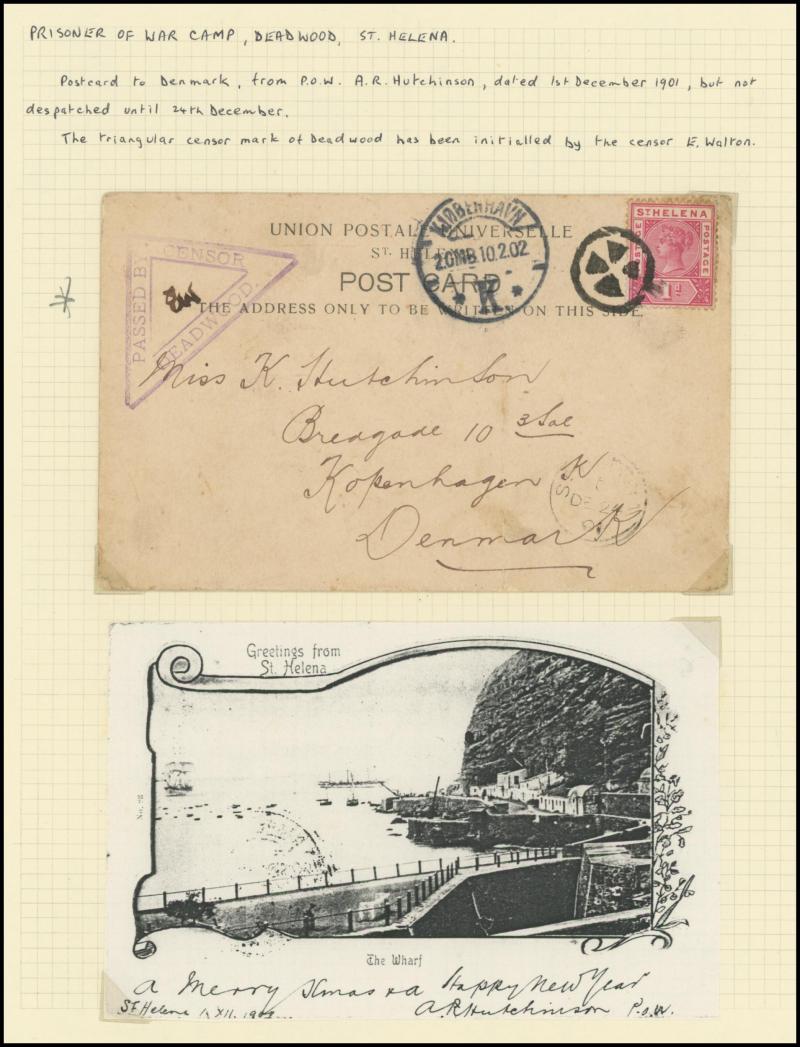 PRISONER OF WAR CAMP, DEADWOOD, ST. HELENA.
Postcard to Denmark, from P.O.W. A.R. Hutchinson, dated 1st December 1901, but not
despatched until 24th December.
The triangular censor mark of Deadwood has been initialled by the censor E. Walton.
UNION POSTALE UNIVERSELLE
ST. HELENA
POST CARD
THE ADDRESS ONLY TO BE WRITTEN ON THIS SIDE
PASSED BY CENSOR
DEADWOOD.
EW
KJØBENHAVN
2.OMB.10.2.02
K
ST HELENA
POSTAGE
POSTAGE
1D
Miss K. Hutchinson
Bredgade 10 3 Sal
Kopenhagen K
Denmark
Greetings from
St. Helena
The Wharf
A Merry Xmas & a Happy New Year
St Helena 1. XII. 1901 A R Hutchinson P.O.W.